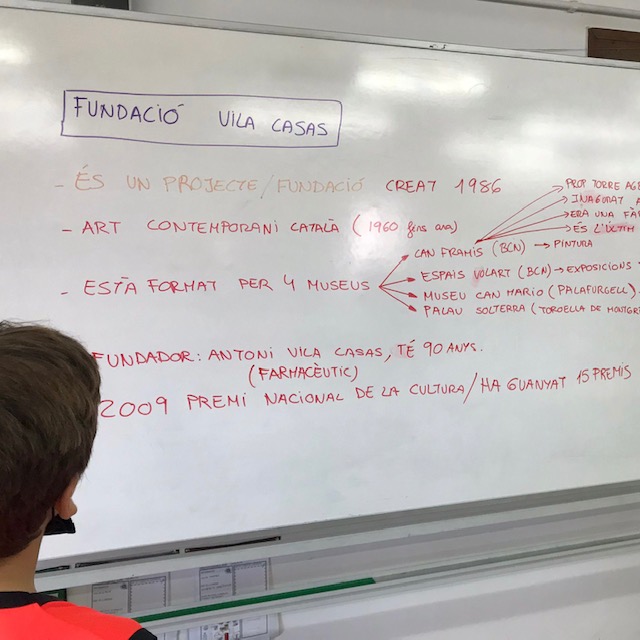 FUNDACIÓ VILA CASAS
- ÉS UN PROJECTE/FUNDACIÓ CREAT 1986
PROP TORRE
INAGURAT
ERA UNA
ÉS L'ÚLTIM
- ART CONTEMPORANI CATALÀ (1960 fins ara)
CAN FRAMIS (BCN) → PINTURA
- ESTÀ FORMAT PER 4 MUSEUS
ESPAIS VOLART (BCN) → EXPOSICIONS
MUSEU CAN MARIO (PALAFURGELL)
PALAU SOLTERRA (TOROELLA DE MONTGRÍ
FUNDADOR: ANTONI VILA CASAS, TÉ 90 ANYS.
(FARMACÈUTIC)
2009 PREMI NACIONAL DE LA CULTURA/HA GUANYAT 15 PREMIS